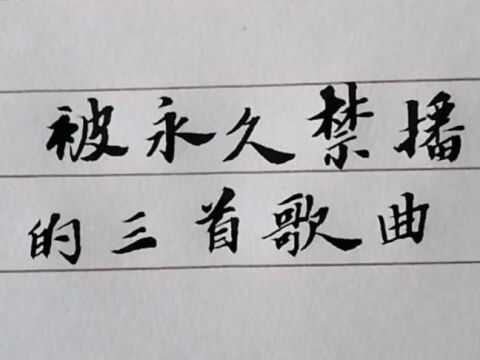 被永久禁播
的三首歌曲